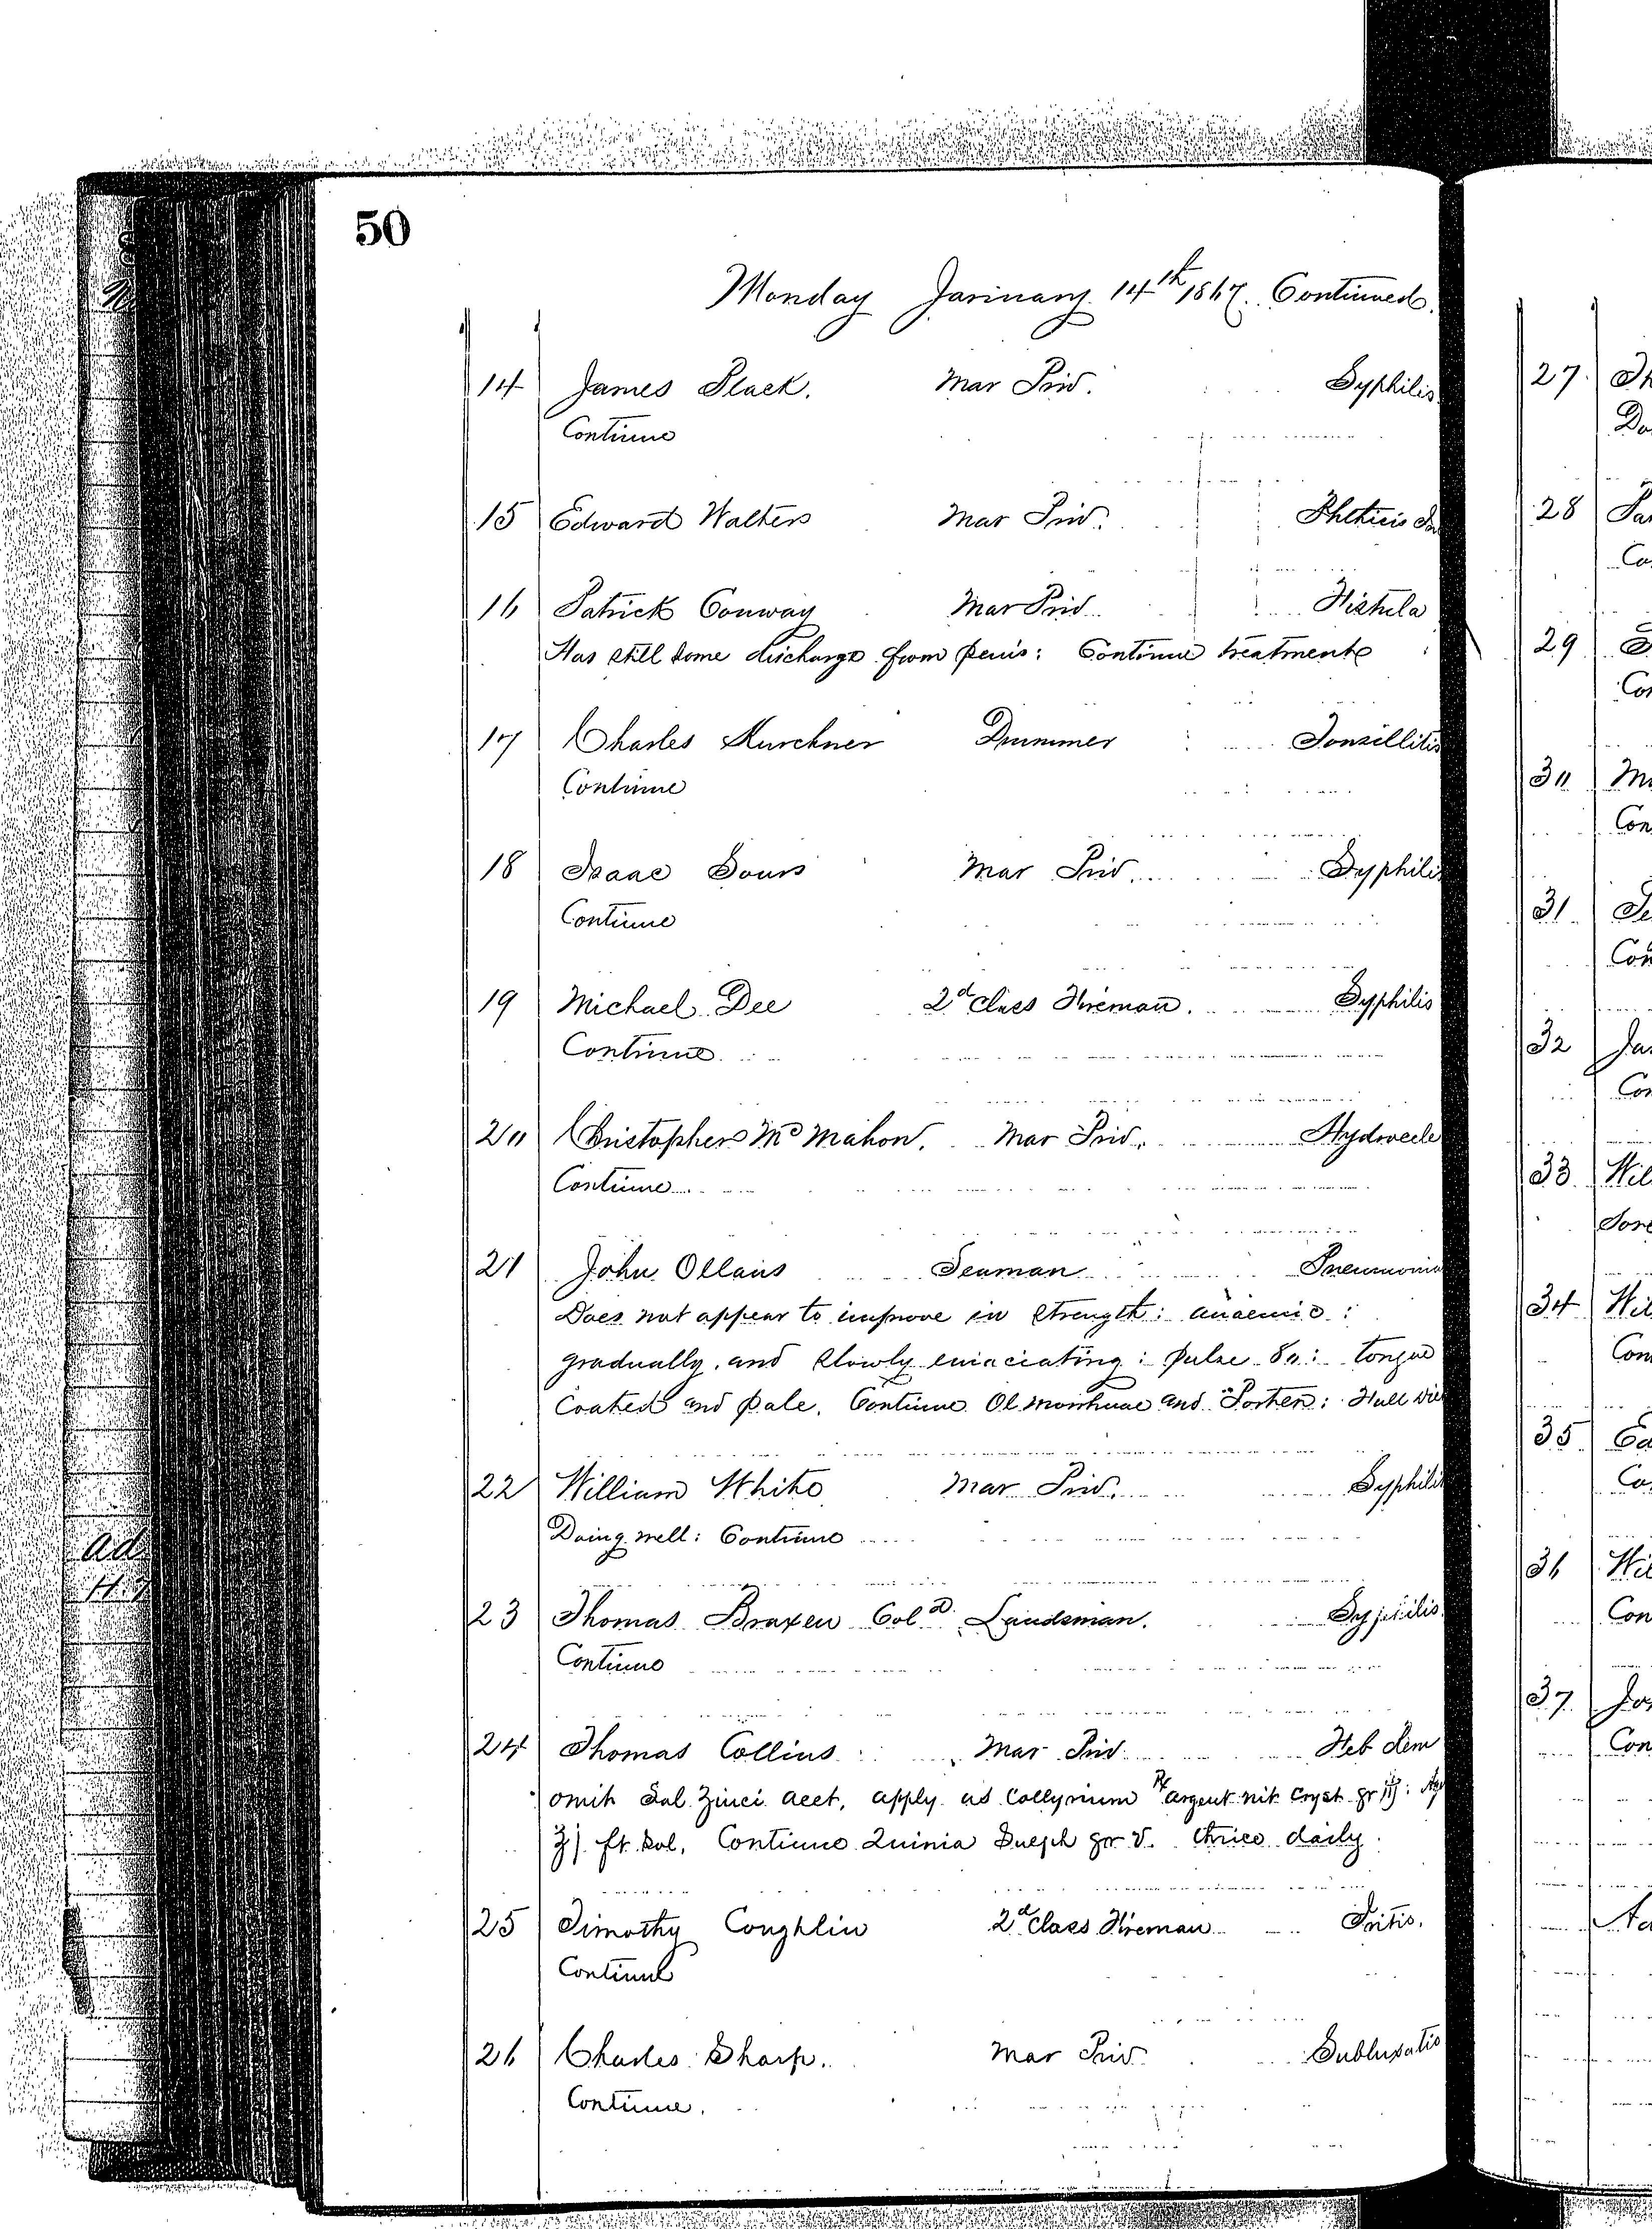 50
Monday January 14th 1867. Continued.
14 James Slack. Mar Priv. Syphilis
Continue
15 Edward Walters Mar Priv. Phthisis
16 Patrick Conway Mar Priv. Fistula
Has still some discharge from penis: Continue treatment
17 Charles Kurchner Drummer Tonsillitis
Continue
18 Isaac Sours Mar Priv. Syphilis
Continue
19 Michael Dee 2d Class Fireman. Syphilis
Continue
20 Christopher Mc Mahon. Mar Priv. Hydrocele
Continue
21 John Ollaus Seaman Pneumonia
Does not appear to improve in strength: anaemic:
gradually and slowly emaciating: pulse 80: tongue
Coated and pale. Continue Ol Morrhuae and Porter: Full
22 William White Mar Priv. Syphilis
Doing well: Continue
23 Thomas Braxen Cold. Landsman. Syphilis
Continue
24 Thomas Collins Mar Priv. Feb
omit Sol Zinci acet, apply as Collyrium ℞ argent nit Cryst gr iij:
℥j ft sol, Continue Quinia Sulph gr V. thrice daily.
25 Timothy Coughlin 2d Class Fireman Iritis.
Continue
26 Charles Sharp. Mar Priv Subluxatio
Continue.
27
28
29
30
31
32
33
34
35
36
37